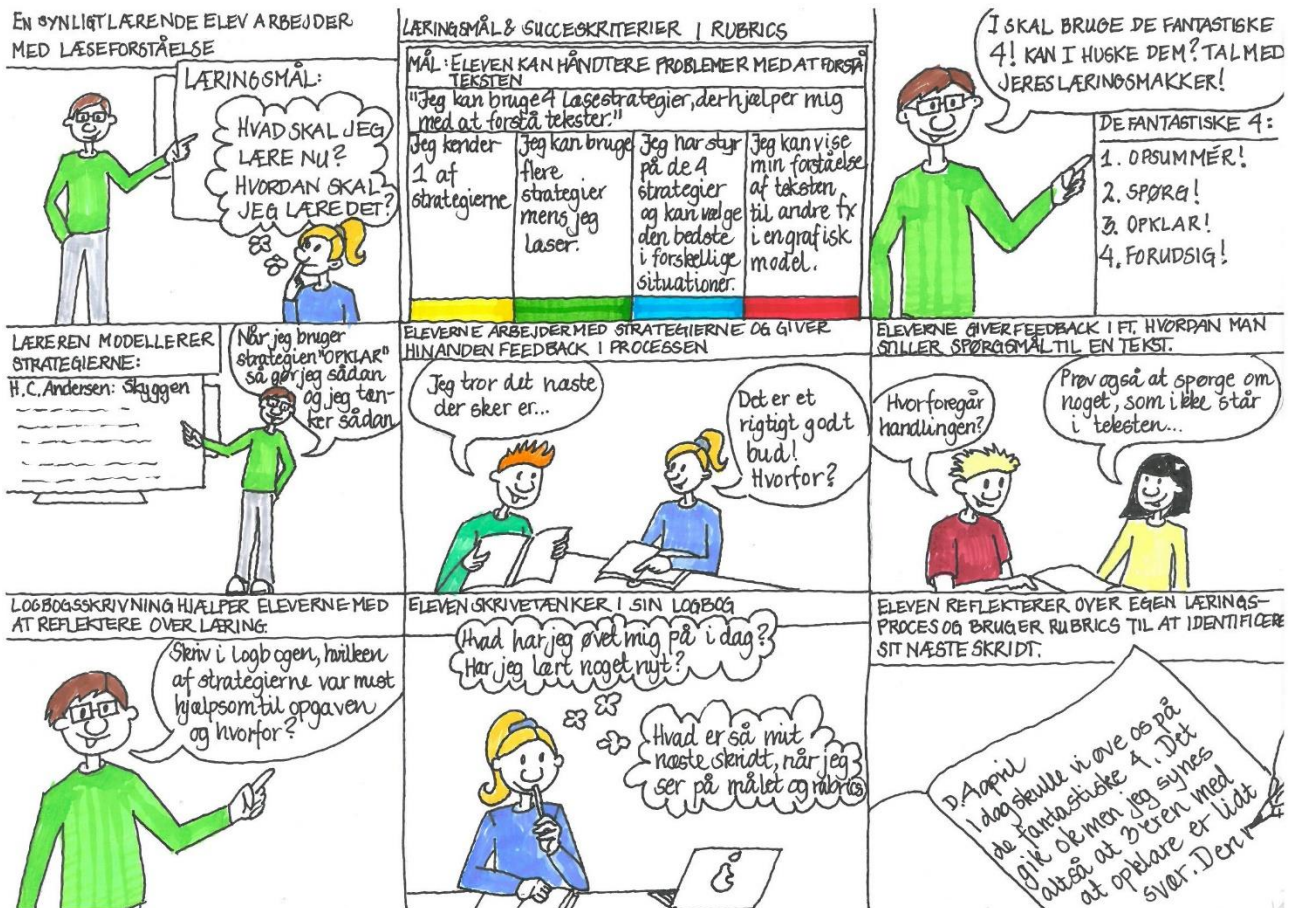 EN SYNLIGT LÆRENDE ELEV ARBEJDER
MED LÆSEFORSTÅELSE
LÆRINGSMÅL:
HVAD SKAL JEG
LÆRE NU?
HVORDAN SKAL
JEG LÆRE DET?
LÆRINGSMÅL & SUCCESKRITERIER I RUBRICS
MÅL: ELEVEN KAN HÅNDTERE PROBLEMER MED AT FORSTÅ
TEKSTEN
"Jeg kan bruge 4 læsestrategier, der hjælper mig
med at forstå tekster."
Jeg kender
1 af
strategierne
Jeg kan bruge
flere
strategier
mens jeg
læser.
Jeg har styr
på de 4
strategier
og kan vælge
den bedste
i forskellige
situationer.
Jeg kan vise
min forståelse
af teksten
til andre fx
i en grafisk
model.
I SKAL BRUGE DE FANTASTISKE
4! KAN I HUSKE DEM? TAL MED
JERES LÆRINGSMAKKER!
DE FANTASTISKE 4:
1. OPSUMMÉR!
2. SPØRG!
3. OPKLAR!
4. FORUDSIG!
LÆREREN MODELLERER
STRATEGIERNE:
H.C. Andersen: Skyggen
Når jeg bruger
strategien "OPKLAR"
så gør jeg sådan
og jeg tæn-
ker sådan
ELEVERNE ARBEJDER MED STRATEGIERNE OG GIVER
HINANDEN FEEDBACK I PROCESSEN
Jeg tror det næste
der sker er...
Det er et
rigtigt godt
bud!
Hvorfor?
ELEVERNE GIVER FEEDBACK I FT. HVORDAN MAN
STILLER SPØRGSMÅL TIL EN TEKST.
Hvor foregår
handlingen?
Prøv også at spørge om
noget, som ikke står
i teksten...
LOGBOGSSKRIVNING HJÆLPER ELEVERNE MED
AT REFLEKTERE OVER LÆRING.
Skriv i logbogen, hvilken
af strategierne var mest
hjælpsom til opgaven
og hvorfor?
ELEVEN SKRIVETÆNKER I SIN LOGBOG
Hvad har jeg øvet mig på i dag?
Har jeg lært noget nyt?
Hvad er så mit
næste skridt, når jeg
ser på målet og rubrics
ELEVEN REFLEKTERER OVER EGEN LÆRINGS-
PROCES OG BRUGER RUBRICS TIL AT IDENTIFICERE
SIT NÆSTE SKRIDT.
D. 4 april
I dag skulle vi øve os på
de fantastiske 4. Det
gik ok men jeg synes
altså at 3'eren med
at opklare er lidt
svær. Den